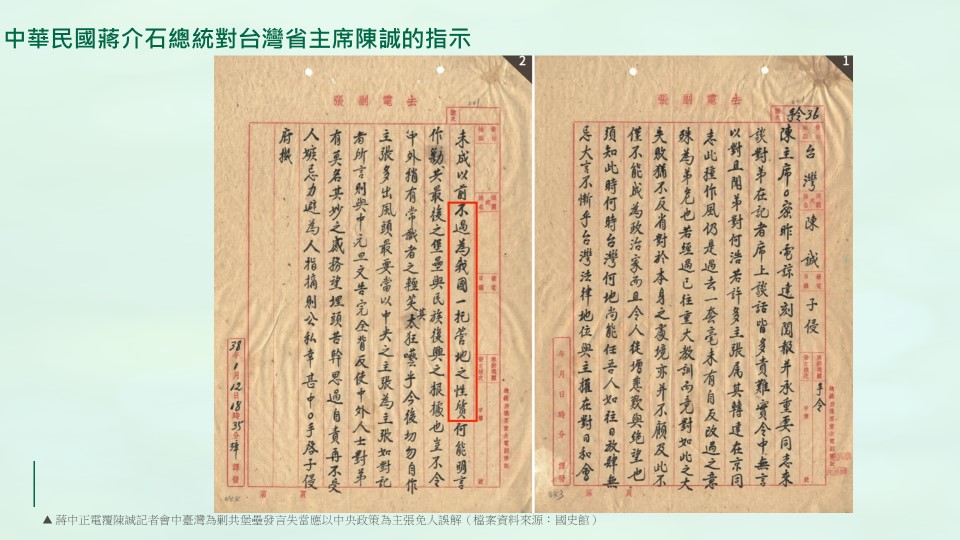 中華民國蔣介石總統對台灣省主席陳誠的指示
1
去電副張
36
台灣陳誠
子侵
手令
陳主席。密昨電諒達刻閱報并承重要同志來
談對弟在記者席上談話皆多責難實令中無言
以對且聞弟對何浩若許多主張属其轉達在京同
志此種作風仍是過去一套毫未有自反改過之意
殊為弟危也若經過已往重大教訓而竟對如此之大
失敗猶不反省對於本身之處境亦并不顧及此不
僅不能成為政治家而且令人徒增悲歎與絕望也
須知此時何時台灣何地尚能任吾人如往日放肆無
忌大言不慚乎台灣法律地位與主權在對日和會
年月日時分譯發
2
去電副張
未成以前不過為我國一托管地之性質何能明言
作勦共最後之堡壘與民族復興之根據也豈不令
中外稍有常識者之輕笑其太狂囈乎今後切勿自作
主張多出風頭最要當以中央之主張為主張如對記
者所言則與中元旦文告完全背反使中外人士對弟
有莫名其妙之感務望埋頭苦幹思過自責再不受
人嫉忌力避為人指摘則公私幸甚中。手啓子侵
府機
38年1月12日18時35分譯發
▲ 蔣中正電覆陳誠記者會中臺灣為剿共堡壘發言失當應以中央政策為主張免人誤解（檔案資料來源：國史館）